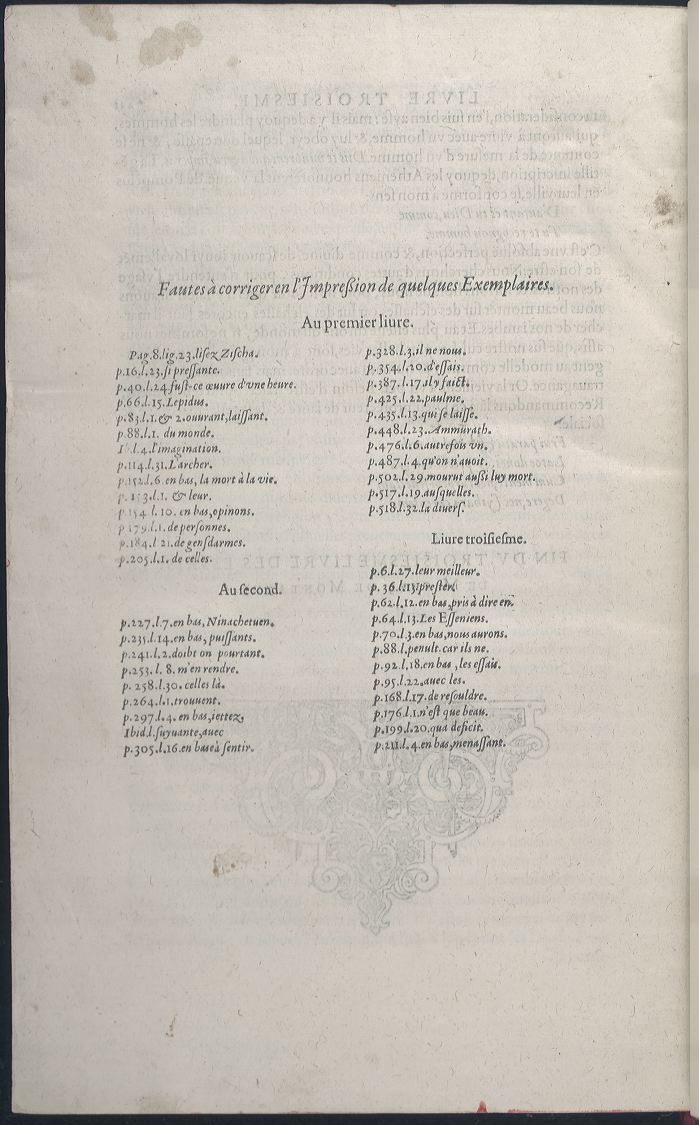 Fautes à corriger en l'Impreſsion de quelques Exemplaires.
Au premier liure.
Pag.8.lig.23.liſez Ziſcha.
p.16.l.23.ſi preſſante.
p.40.l.24.fuſt-ce œuure d'vne heure.
p.66.l.15.Lepidus.
p.83.l.1.& 2.ouurant,laiſſant.
p.88.l.1. du monde.
l.4.l'imagination.
p.114.l.31.L'archer.
p.152.l.6.en bas, la mort à la vie.
l.1. & leur.
p.154.l.10. en bas,opinons.
p.179.l.1.de perſonnes.
p.184.l.21.de genſdarmes.
p.205.l.1. de celles.
Au second.
p.227.l.7.en bas, Ninachetuen.
p.235.l.14.en bas, puiſſants.
p.241.l.2.doibt on pourtant.
p.253. l. 8. m'en rendre.
p. 258.l.30. celles là.
p.264.l.1.trouuent.
p.297.l.4. en bas,iettez,
Ibid.l.ſuyuante,auec
p.305.l.16.en bas à ſentir.
p.328.l.3.il ne nous.
p.354.l.20.d'eſſais.
p.387.l.17.il y faict.
p.425.l.22.paulme.
p.435.l.13.qui ſe laiſſe.
p.448.l.23.Ammurath.
p.476.l.6.autrefois vn.
p.487.l.4.qu'on n'auoit.
p.502.l.29.mourut auſsi luy mort.
p.517.l.19.auſquelles.
p.518.l.32.la diuerſ.
Liure troiſieſme.
p.6.l.27.leur meilleur.
p.36.l.13.preſter.
p.62.l.12.en bas,pris à dire en.
p.64.l.13.Les Eſſeniens.
p.70.l.3.en bas,nous aurons.
p.88.l.penult.car ils ne.
p.92.l.18.en bas, les eſſais.
p.95.l.22.auec les.
p.168.l.17.de reſouldre.
p.176.l.1.n'eſt que beau.
p.199.l.20.qua deficit.
p.211.l.4.en bas,menaſſant.